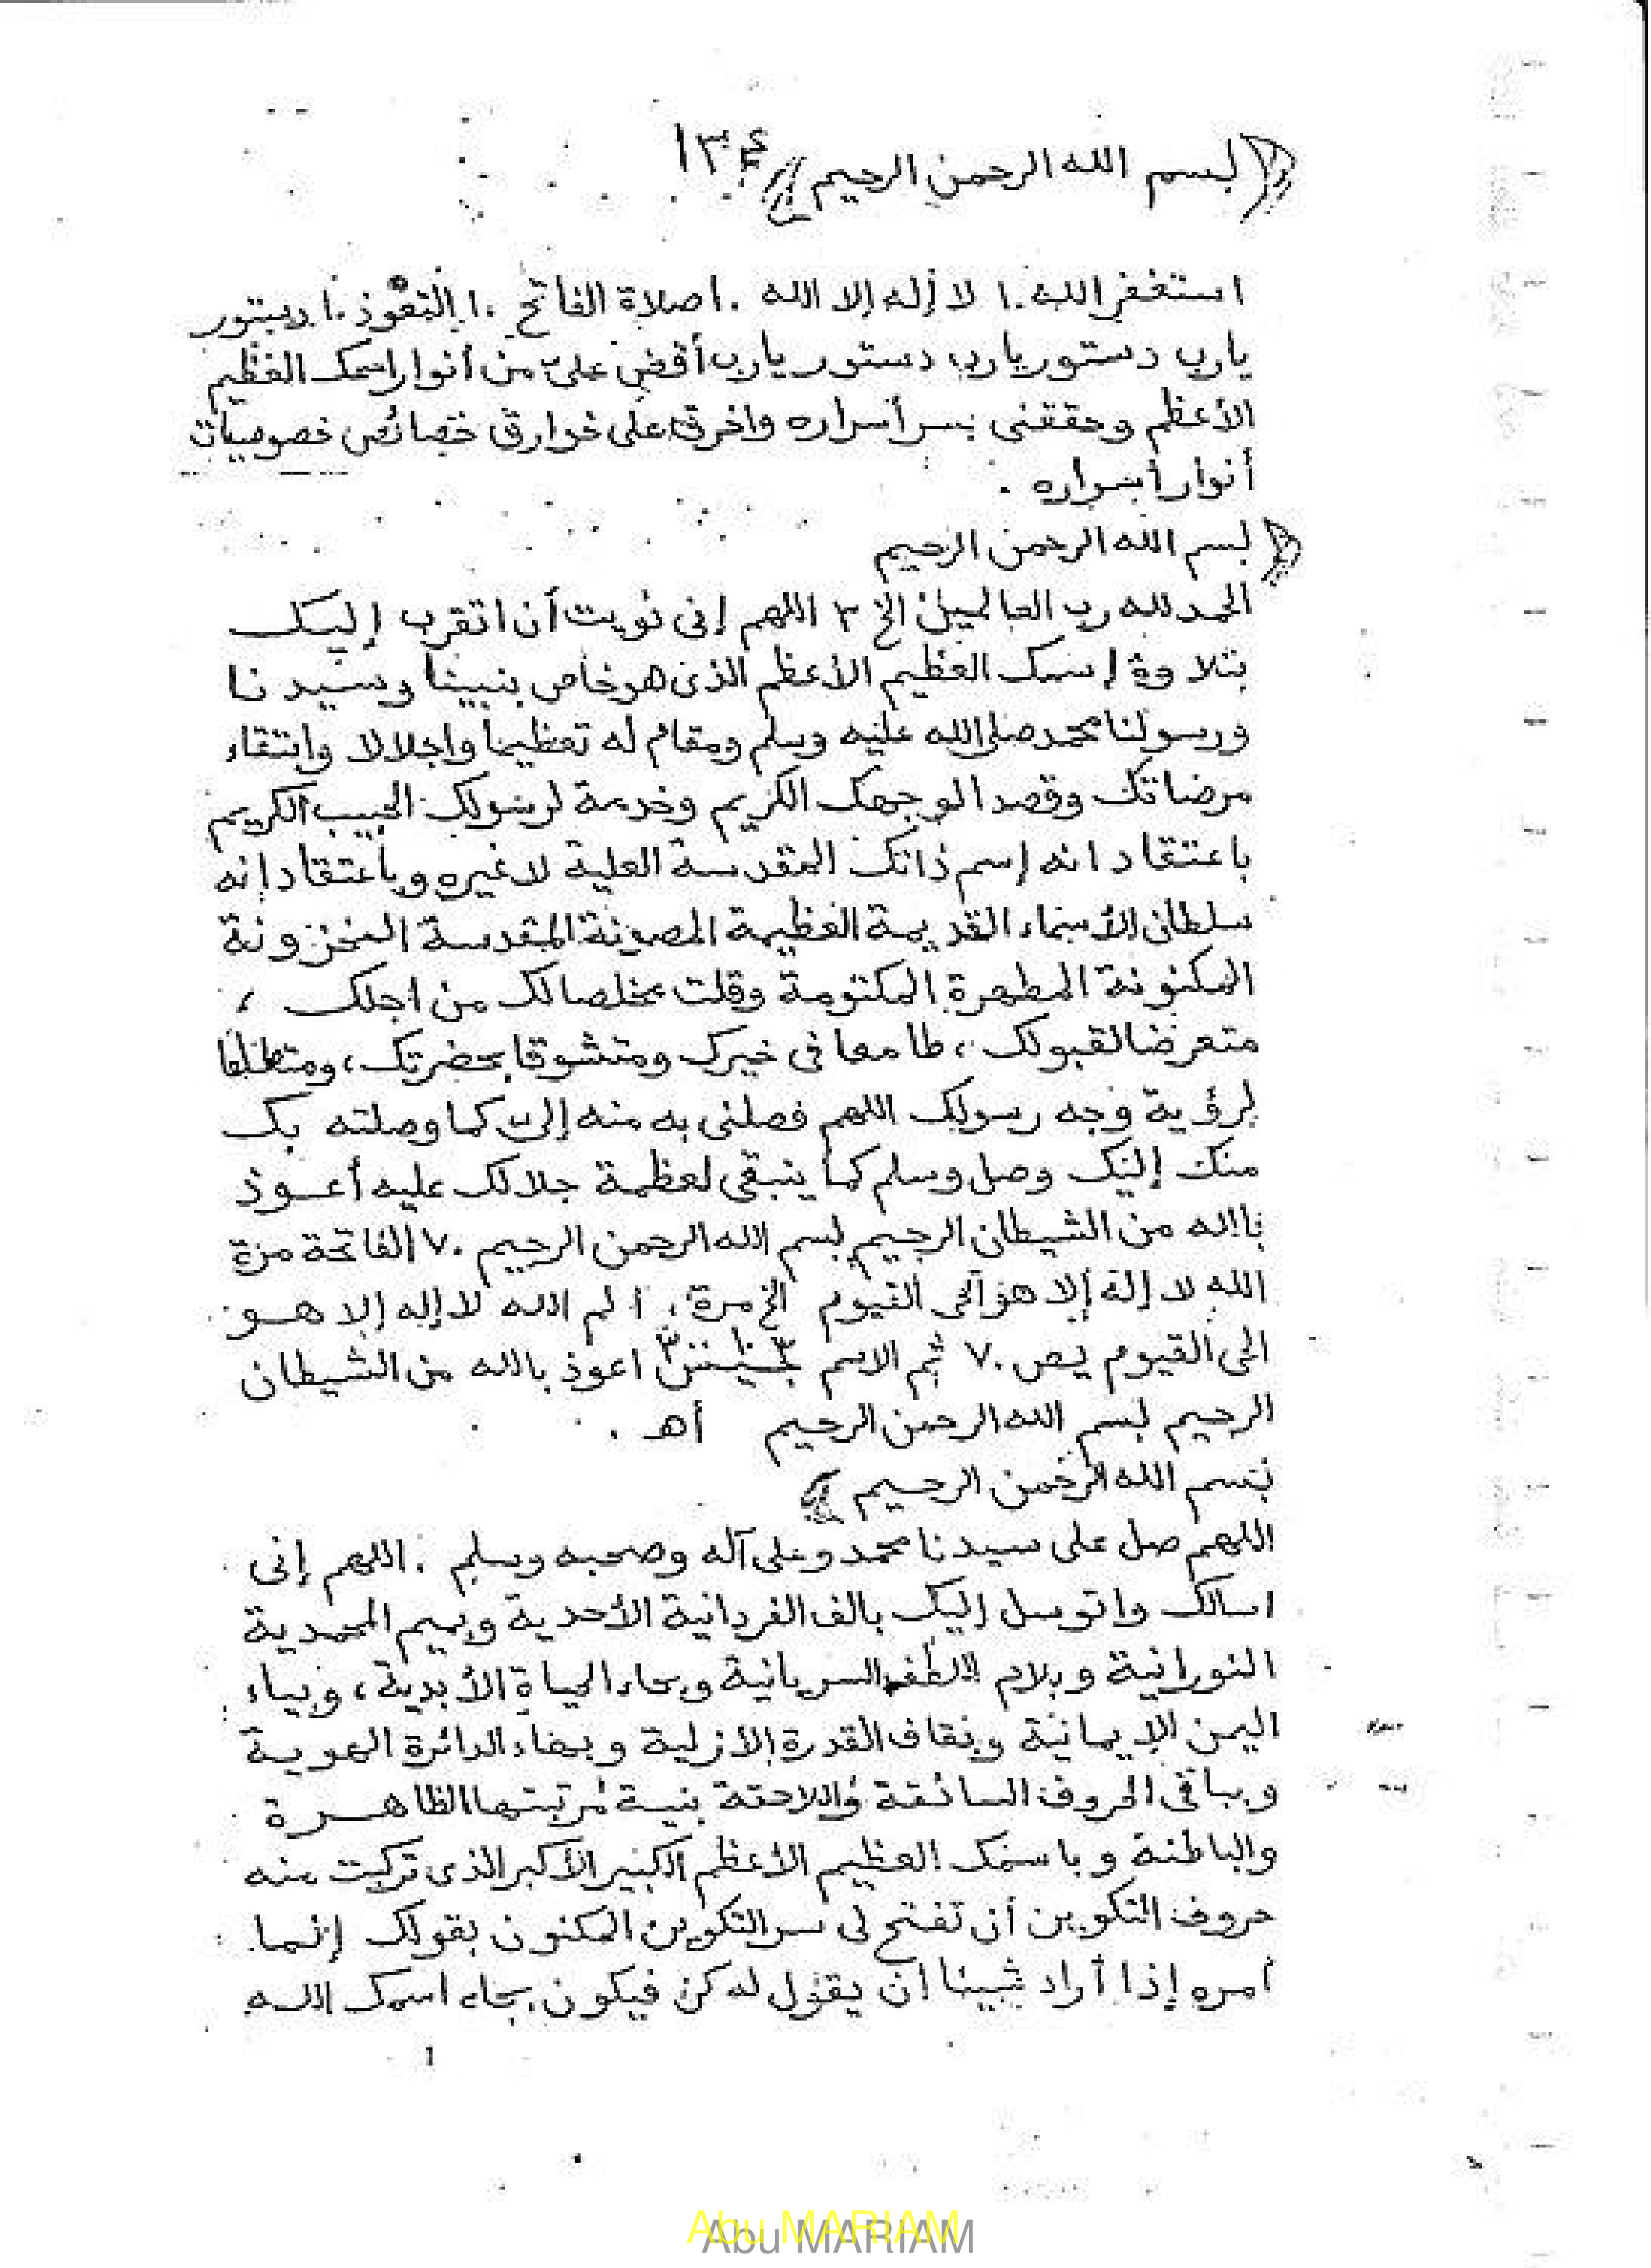 ﴿ بسم الله الرحمن الرحيم ﴾ ١٣٤
استغفر الله ١٠ لا إله إلا الله ١٠ صلاة الفاتح ١٠ التعوذ ١٠ دستور
يارب دستور يارب دستور يارب أفض علىّ من أنوار اسمك العظيم
الأعظم وحققنى بسر أسراره واخرق على خوارق خصائص خصوصيات
أنوار أسراره .
﴿ بسم الله الرحمن الرحيم
الحمد لله رب العالمين الخ ٣ اللهم إنى نويت أن اتقرب إليك
بتلاوة إسمك العظيم الأعظم الذى هو خاص بنبينا وسيدنا
ورسولنا محمد صلى الله عليه وسلم ومقام له تعظيما واجلالا وابتغاء
مرضاتك وقصدا لوجهك الكريم وخدمة لرسولك الحبيب الكريم
باعتقاد انه إسم ذاتك المقدسة العلية لا غيره وباعتقاد إنه
سلطان الأسماء القديمة العظيمة المصونة المقدسة المخزونة
المكنونة المطهرة المكتومة وقلت مخلصا لك من اجلك ،
متعرضا لقبولك ، طامعا فى خيرك ومتشوقا بحضرتك ، ومتطلعا
لرؤية وجه رسولك اللهم فصلنى به منه إليك كما وصلته بك
منك إليك وصل وسلم كما ينبغى لعظمة جلالك عليه أعوذ
بالله من الشيطان الرجيم بسم الله الرحمن الرحيم ٧٠ الفاتحة مرة
الله لا إله إلا هو الحى القيوم الخ مرة ، الم الله لا إله إلا هو
الحى القيوم يص ٧٠ ثم الاسم اعوذ بالله من الشيطان
الرجيم بسم الله الرحمن الرحيم أهـ .
بسم الله الرحمن الرحيم ﴾
اللهم صل على سيدنا محمد وعلى آله وصحبه وسلم . اللهم إنى
اسالك واتوسل إليك بالف الفردانية الأحدية وبميم المحمدية
النورانية وبلام اللطف السريانية وبحاء الحياة الأبدية ، وبياء
اليمن الإيمانية وبقاف القدرة الأزلية وبهاء الدائرة الهوية
وبباقى الحروف السابقة واللاحقة بنسبة مرتبتها الظاهرة
والباطنة وباسمك العظيم الأعظم الكبير الأكبر الذى تركبت منه
حروف التكوين أن تفتح لى سر التكوين المكنون بقولك إنما
أمره إذا أراد شيئا ان يقول له كن فيكون بجاه اسمك الله
1
Abu MARIAM